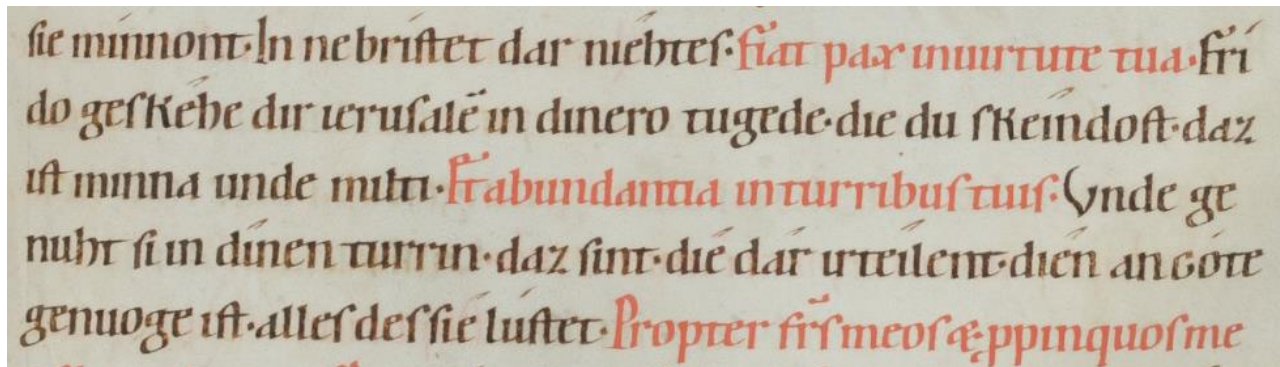 sie minnont· In nebristet dar niehtes· Fiat pax inuirtute tua· Frí
do geskéhe dir ierusalē in dinero tugede· die du skeindost· daz
ist minna unde milti· Et abundantia inturribus tuis· Vnde ge
nuht si in dínen turrin· daz sint· dié dár irteîlent· dien an góte
genuoge ist· alles des sié lústet· Propter fr̄s meos & ꝓpinquos me